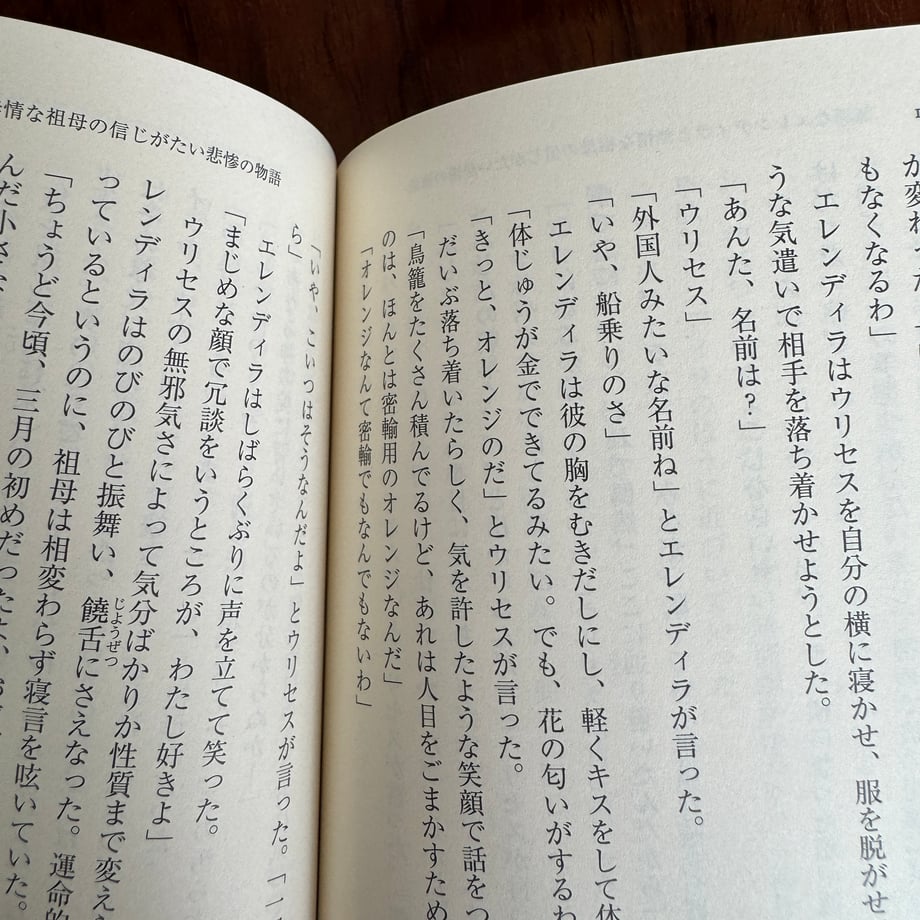 が変わった
もなくなるわ」
エレンディラはウリセスを自分の横に寝かせ、服を脱がせ
うな気遣いで相手を落ち着かせようとした。
「あんた、名前は？」
「ウリセス」
「外国人みたいな名前ね」とエレンディラが言った。
「いや、船乗りのさ」
エレンディラは彼の胸をむきだしにし、軽くキスをして体
「体じゅうが金でできてるみたい。でも、花の匂いがするわ
「きっと、オレンジのだ」とウリセスが言った。
だいぶ落ち着いたらしく、気を許したような笑顔で話をつ
「鳥籠をたくさん積んでるけど、あれは人目をごまかすため
のは、ほんとは密輸用のオレンジなんだ」
「オレンジなんて密輸でもなんでもないわ」
情な祖母の信じがたい悲惨の物語
「いや、こいつはそうなんだよ」とウリセスが言った。「一
ら」
エレンディラはしばらくぶりに声を立てて笑った。
「まじめな顔で冗談をいうところが、わたし好きよ」
ウリセスの無邪気さによって気分ばかりか性質まで変え
レンディラはのびのびと振舞い、饒舌にさえなった。運命的
じょうぜつ
っているというのに、祖母は相変わらず寝言を呟いていた。
「ちょうど今頃、三月の初めだったよ、お
んだ小さな